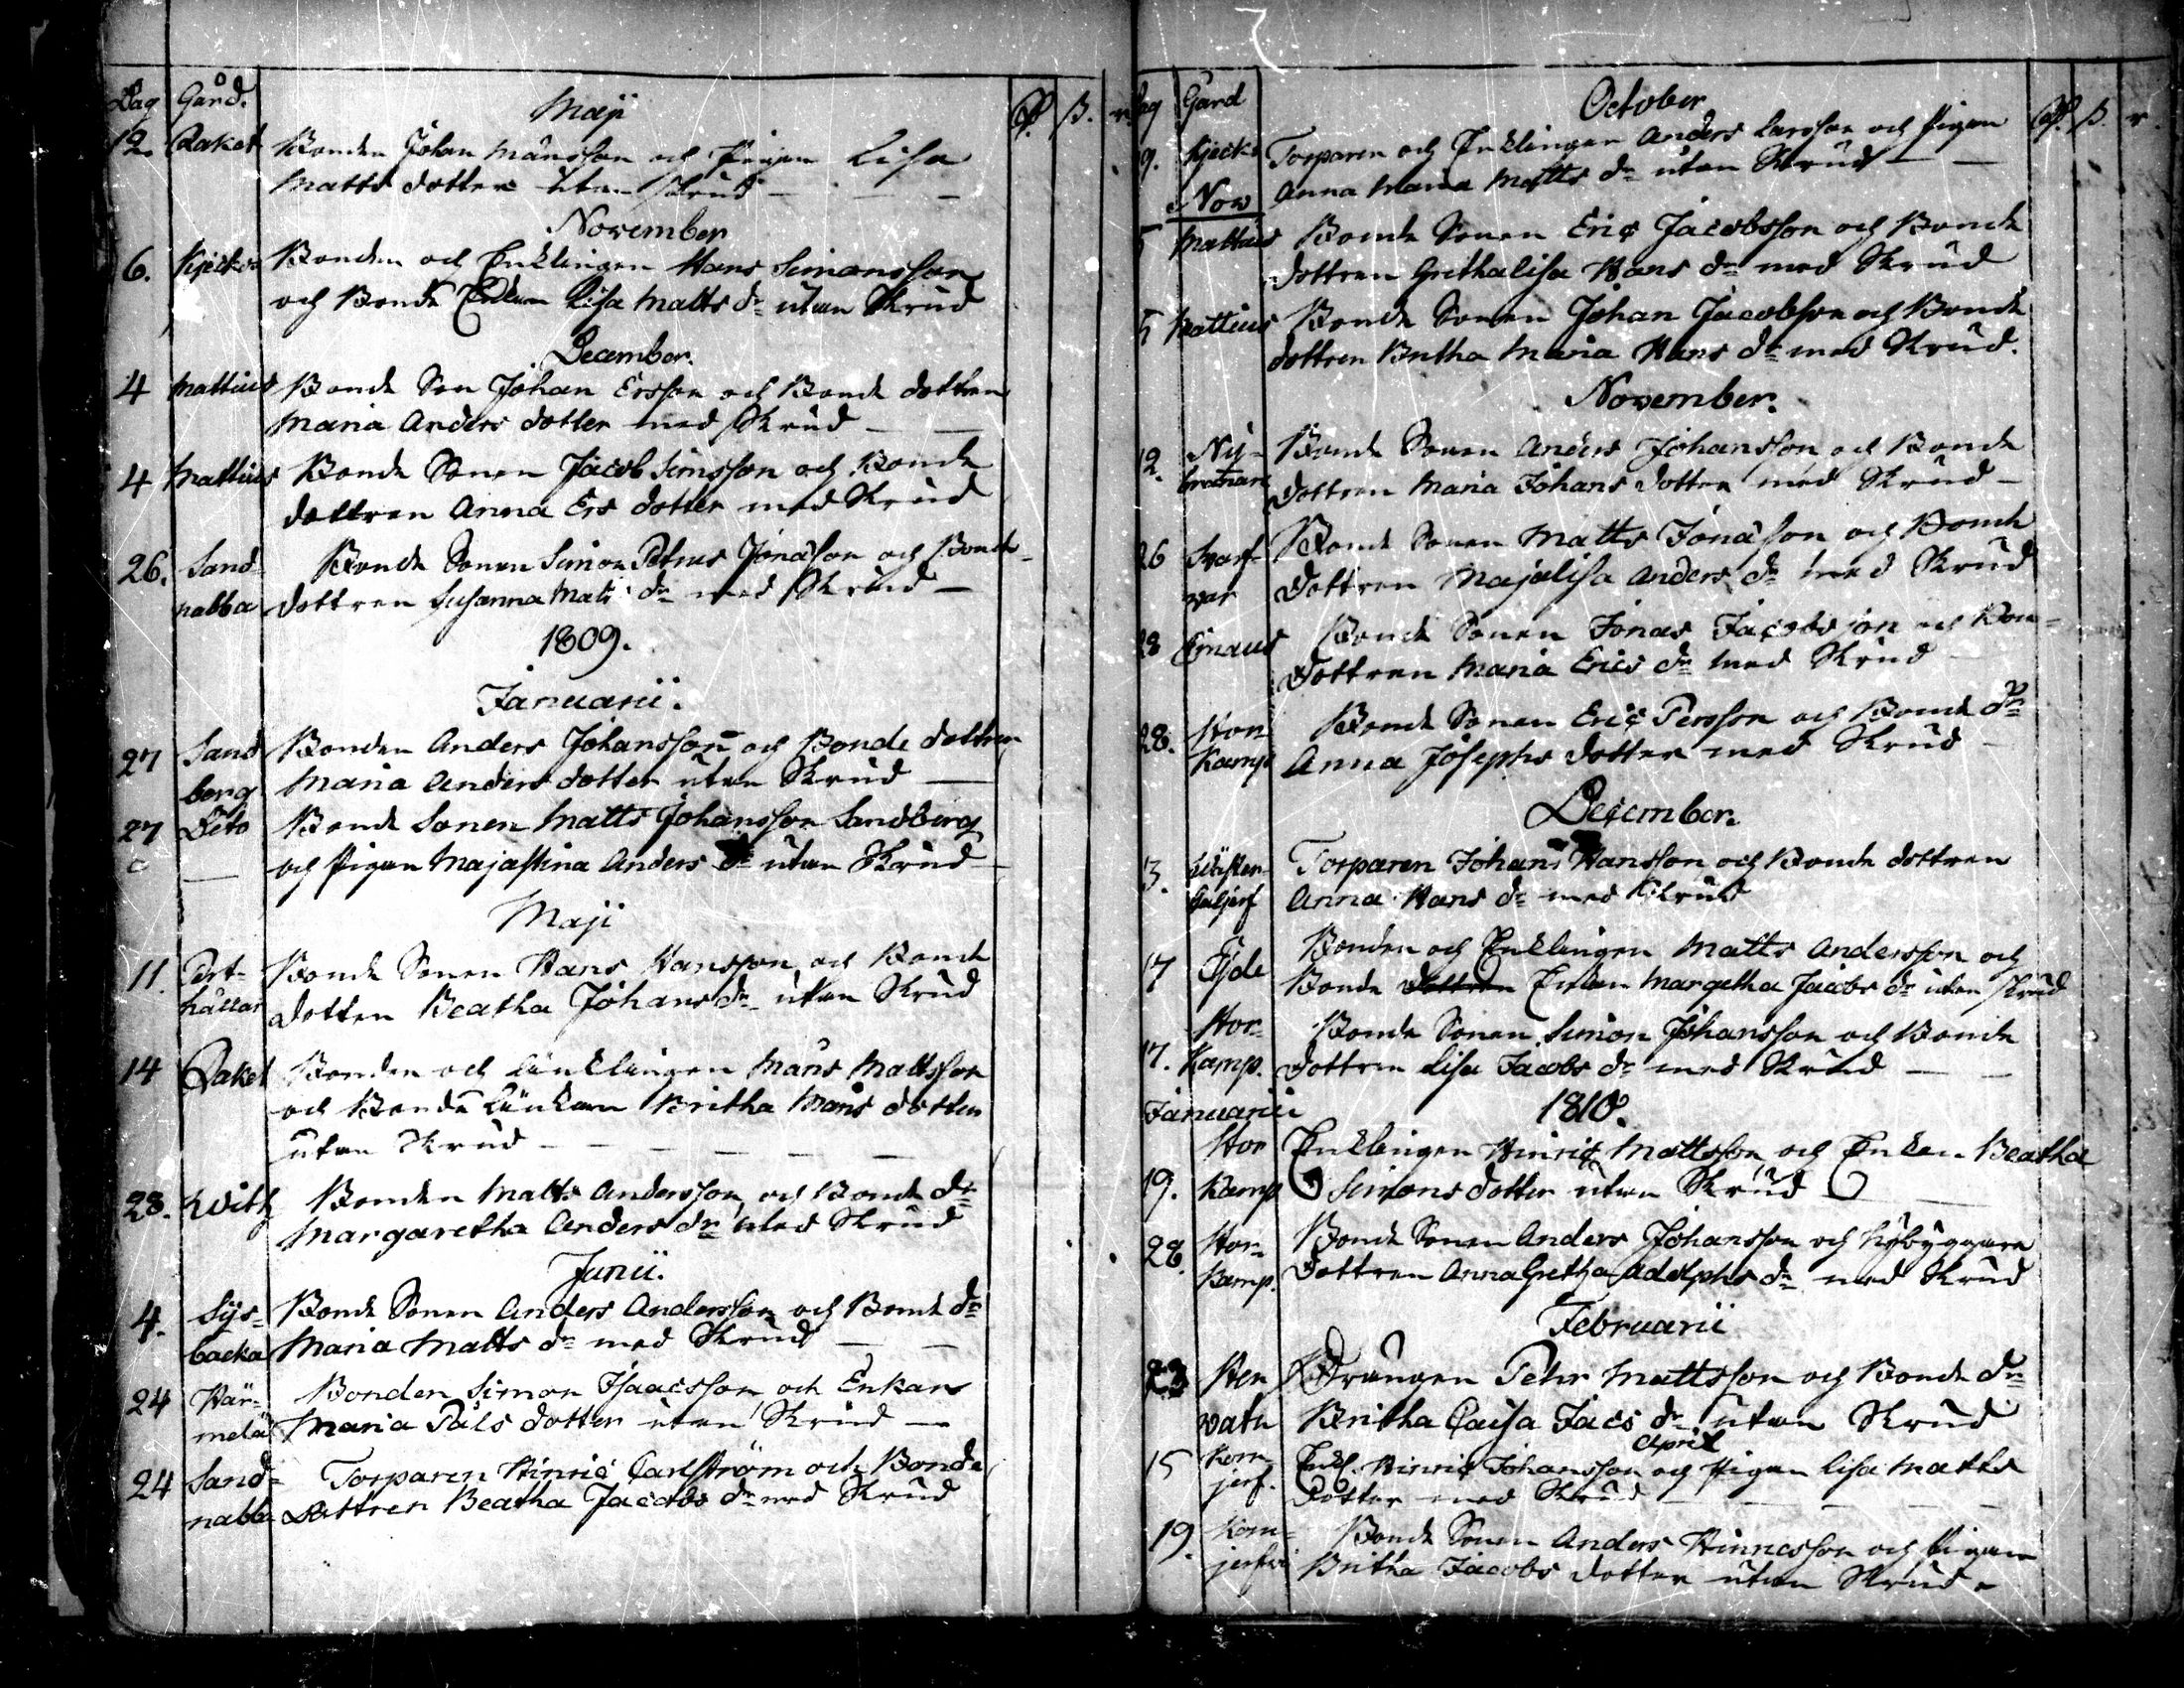 Dag Gård. Maji P. ß. r.
12. Raket Bonden Johan Månsson och Pigan Lisa
Matts dotter utan Skrud
November
6. Kjecko Bonden och Enklingen Hans Simonsson
och Bonde Enkan Lisa Matts dr utan Skrud
December.
4 Mattius Bonde Son Johan Ersson och Bonde dottren
Maria Anders dotter med Skrud
4 Mattius Bonde Sonen Jacob Simsson och Bonde
dottren Anna Ers dotter med Skrud
26. Sand- Bonde Sonen Simon Petrus Jonasson och Bonde-
nabba dottren Susanna Mats dr med Skrud
1809.
Januarii.
27 Sand Bonden Anders Johansson och Bonde dottren
berg Maria Anders dotter utan Skrud
27 Dito Bonde Sonen Matts Johansson Sandberg
och Pigan Majastina Anders dr utan Skrud
Maji
11. Bonde Sonen Hans Hansson och Bonde
dotten Beatha Johans dr utan Skrud
14 Raket Bonden och Änklingen Måns Mattsson
och Bonde Änkan Britha Måns dotter
utan Skrud
28. Kvith Bonden Matts Andersson och Bonde dr
Margaretha Anders dr Med Skrud
Junii.
4. Sys- Bonde Sonen Anders Andersson och Bonde dr
backa Maria Matts dr med Skrud
24 Här- Bonden Simon Isaacsson och Enkan
melä Maria Påls dotter utan Skrud
24 Sand- Torparen Hinric Carlström och Bonde
nabba Dottren Beatha Jacobs dr med Skrud
Dag Gård October P. ß. r
9. Kjecko Torparen och Enklingen Anders Larsson och Pigan
Anna Maria Matts dr utan Skrud
Nov
5 Mattius Bonde Sonen Eric Jacobsson och Bonde
dottren Grethalisa Hans dr med Skrud
5 Mattius Bonde Sonen Johan Jacobsson och Bonde
dottren Britha Maria Hans dr med Skrud.
November.
12. Ny- Bonde Sonen Anders Johansson och Bonde
Dottren Maria Johans dotter med Skrud
26 Svarf- Bonde Sonen Matts Jonasson och Bonde
var Dottren Majalisa Anders dr med Skrud
28 Emaus Bonde Sonen Jonas Jacobsson och Bon-
Dottren Maria Erics dr med Skrud
28. Hon Bonde Sonen Eric Persson och Bonde dr
Kamp Anna Josephs dotter med Skrud
December.
3. Torparen Johan Hansson och Bonde dottren
Anna Hans dr med Skrud
17 Öjde Bonden och Enklingen Matts Andersson och
Bonde Dottren Enkan Margetha Jacobs dr utan Skrud
Hon- Bonde Sonen Simon Johansson och Bonde
17. Kamp. Dottren Lisa Jacobs dr med Skrud
Januarii 1810.
Hon Enklingen Hinric Mattsson och Enkan Beatha
19. Kamp Simons dotter utan Skrud
28. Hon- Bonde Sonen Anders Johansson och Nybyggare
Kamp. Dottren Anna Gretha Adolphs dr med Skrud
Februarii
23 Hen Drängen Pehr Mattsson och Bonde dr
vatn Britha Caisa Jacs dr utan Skrud
April
15 Kom Enkl. Hinric Johansson och Pigan Lisa Matts
jerf. Dotter med Skrud
19. Kom- Bonde Sonen Anders Hinricsson och Pigan
jerfvi Britha Jacobs dotter utan Skrud